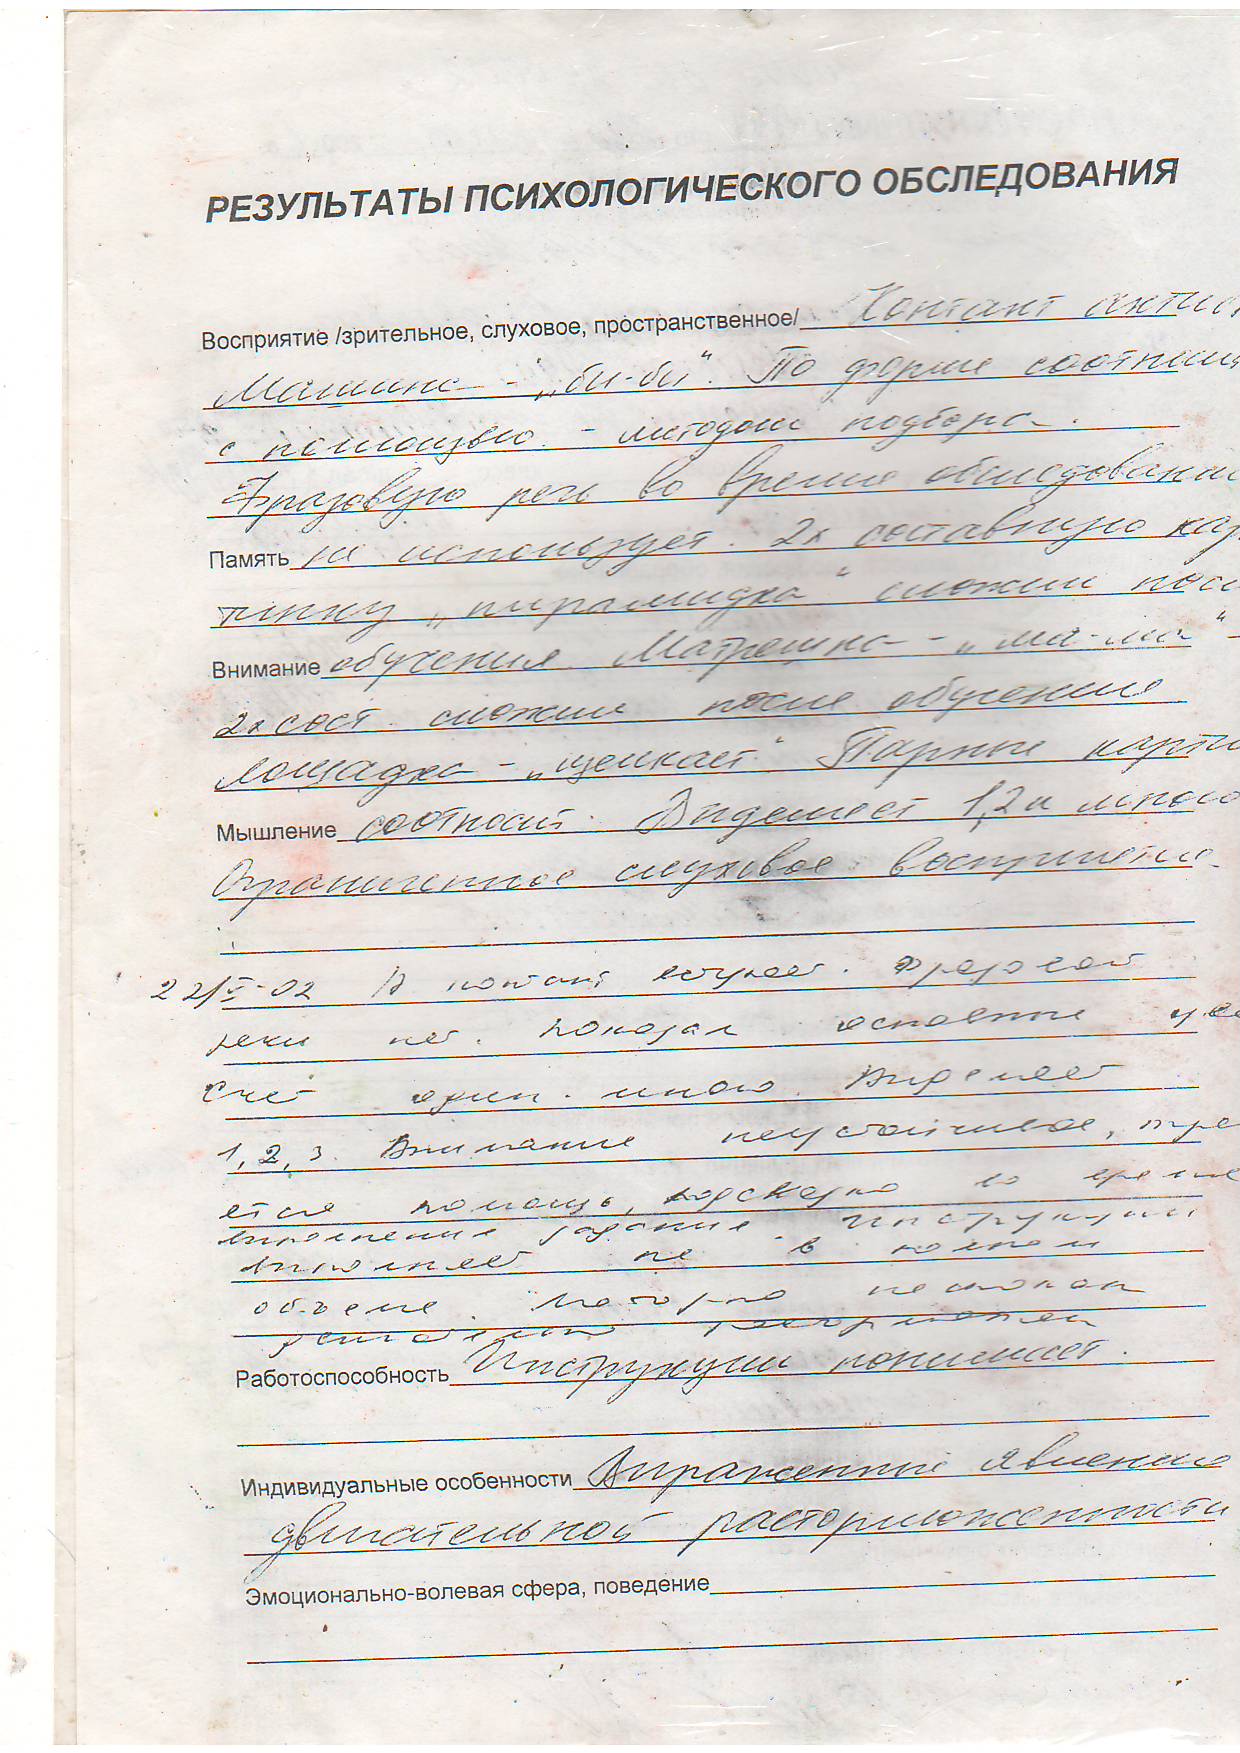 РЕЗУЛЬТАТЫ ПСИХОЛОГИЧЕСКОГО ОБСЛЕДОВАНИЯ
Восприятие /зрительное, слуховое, пространственное/ Контакт
Машина - „би-би". По форме
с помощью - методом подбора.
Фразовую речь во время обследования
Память не использует. 2х составную кар
тинку „пирамидка" сложил
Внимание обучения. Матрешка - „ма-ма" -
2х сост. сложил после обучения
лошадка - „щелкает". Парные
Мышление соотносит. Выделяет 1,2 и много
Ограниченное слуховое восприятие.
22/V-02 В контакт вступает. Фразовой
речи нет. Показал основные
Счет один. много. Выделяет
1, 2, 3. Внимание неустойчивое,
ется помощь, подсказка во время
выполнения задания Инструкции
выполняет не в полном
объеме. Моторно неловок
расторможен
Работоспособность Инструкции понимает.
Индивидуальные особенности Выраженные явления
двигательной расторможенности
Эмоционально-волевая сфера, поведение